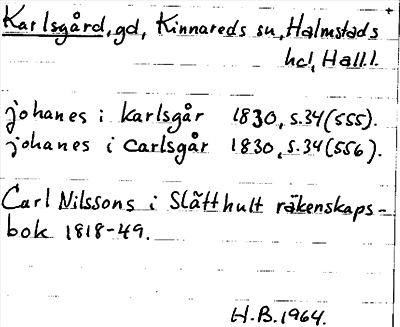 Karlsgård, gd, Kinnareds sn, Halmstads
hd, Hall.l.
johanes i karlsgår 1830, s.34(555).
johanes i carlsgår 1830, s.34(556).
Carl Nilssons i Slätthult räkenskaps-
bok 1818-49.
H.B. 1964.